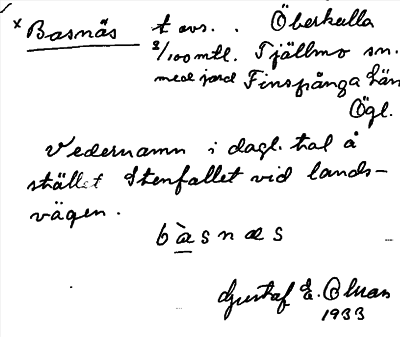 x Basnäs t avs. . Överkulla
2/100 mtl. Tjällmo sn.
med jord Finspånga län
Ögl.
Vedernamn i dagl. tal å
stället Stenfallet vid lands-
vägen.
bàsnæs
Gustaf E.
1933